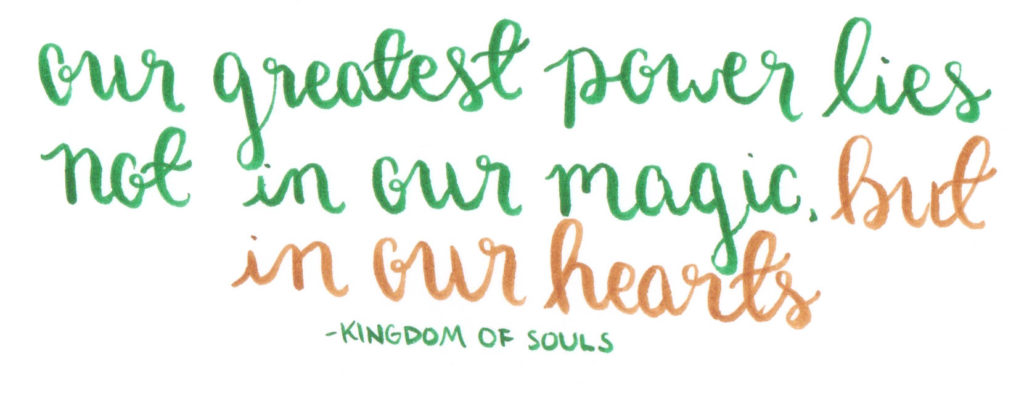 our greatest power lies
not in our magic, but
in our hearts
-KINGDOM OF SOULS